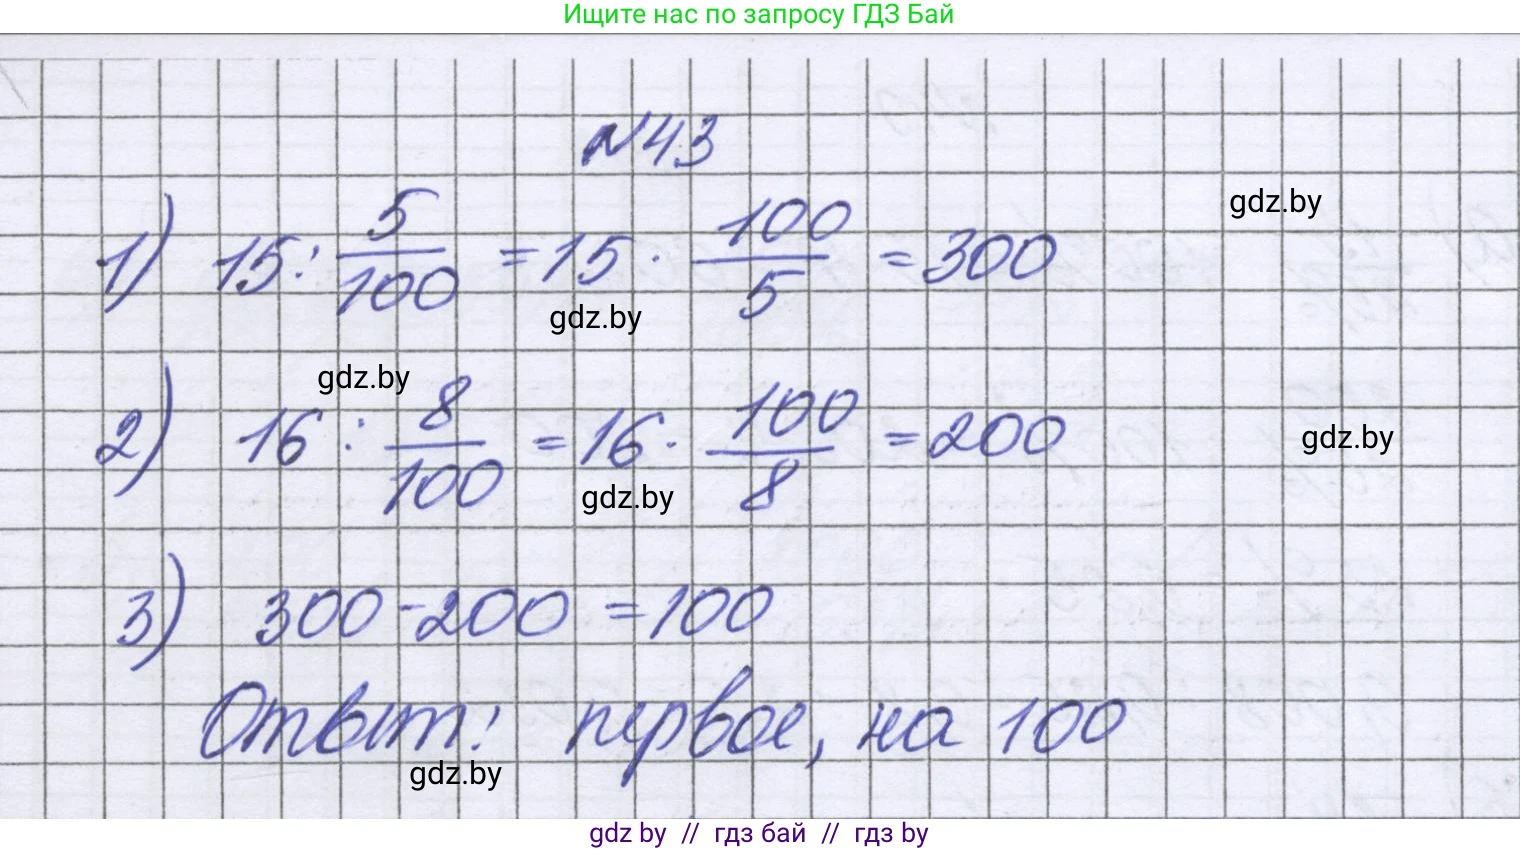 Ищите нас по запросу ГДЗ Бай
№43
gdz.by
1) 15 : 5/100 = 15 · 100/5 = 300
gdz.by
gdz.by
2) 16 : 8/100 = 16 · 100/8 = 200
gdz.by
gdz.by
3) 300 - 200 = 100
Ответ: первое, на 100
gdz.by
gdz by // гдз бай // гдз by